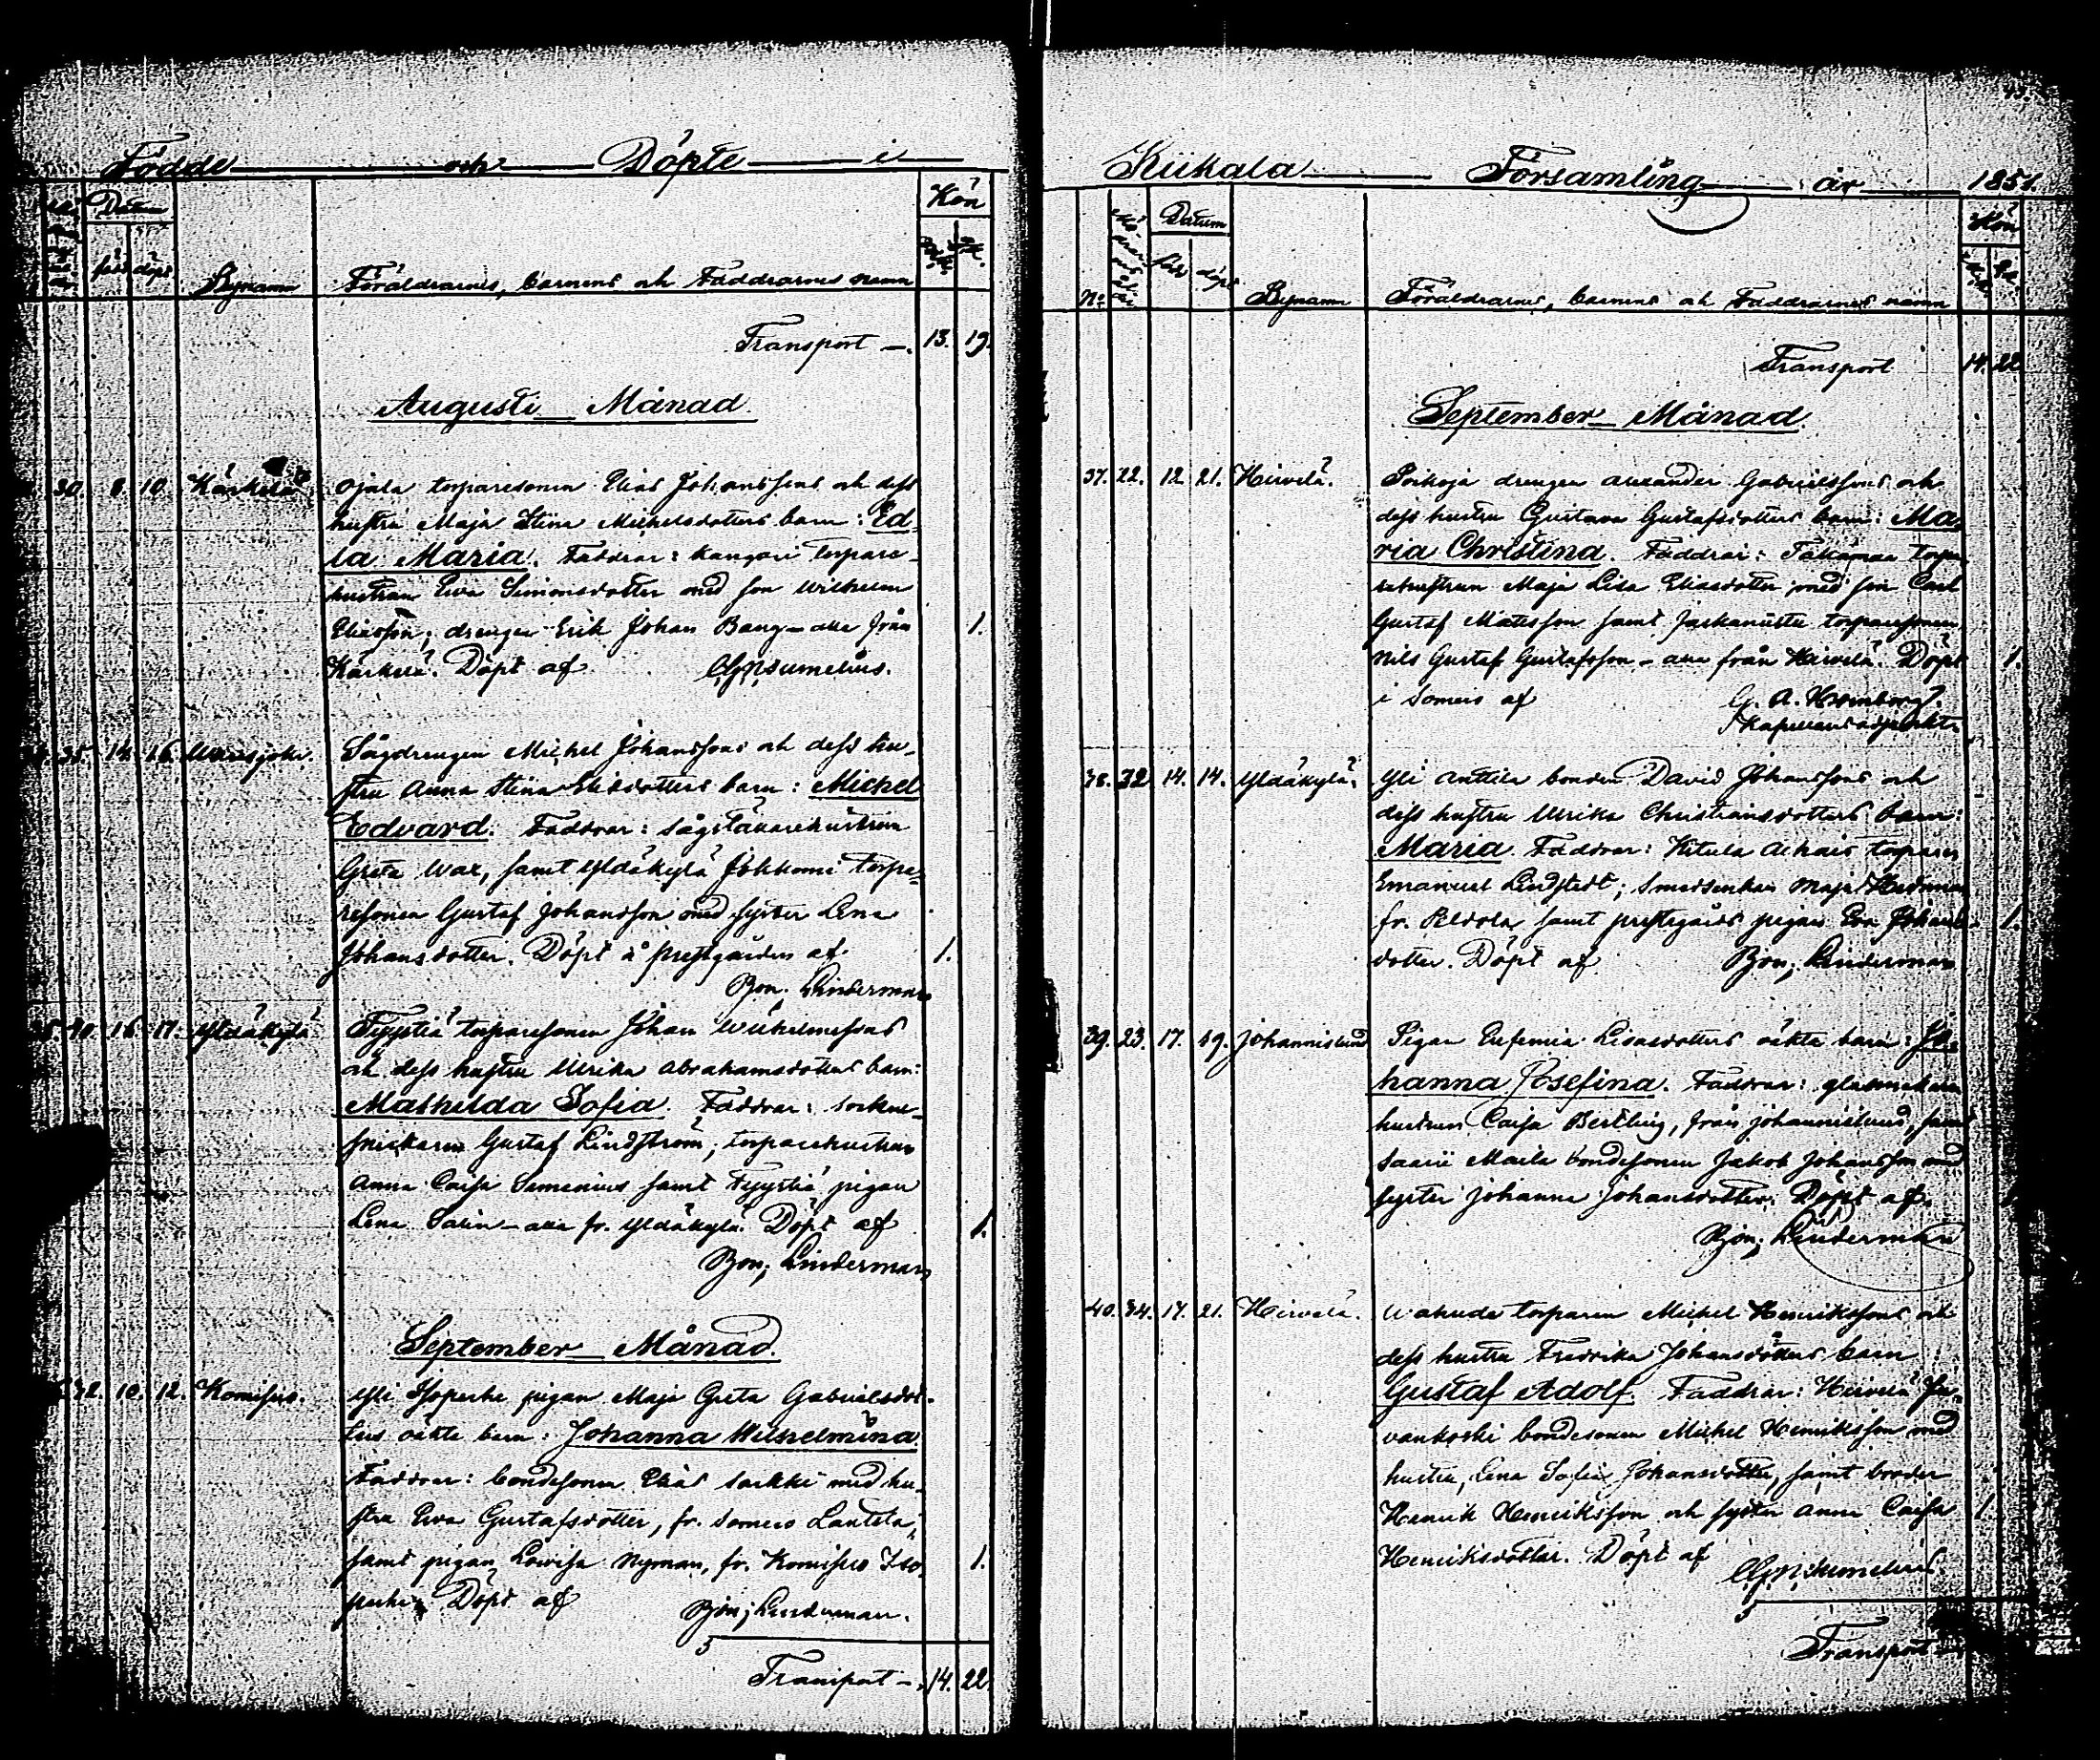 Födde och Döpte i
Datum
född döpt
Bynamn
Föräldrarnes, barnens och Faddrarnes namn
Kön
Transport —. 13. 19.
Augusti Månad.
30. 8. 10. Kärkelä. Ojala torparesonen Elias Johanssons och dess
hustru Maja Stina Michelsdotters barn: Ed-
la Maria. Faddrar: Kangari torpare-
hustrun Ewa Simonsdotter med son Wilhelm
Eliasson; drengen Erik Johan Bang — alla från 1.
Kärkelä. Döpt af
35. 14. 16. Sågdrengen Michel Johanssons och dess hu-
stru Anna Stina Eliedotters barn: Michel
Edvard. Faddrar: sågställarehustrun
Greta Wax, samt Yldäkylä Jokkomi torpa-
resonen Gustaf Johansson med syster Lena
Johansdotter. Döpt å prestgården af 1.
Bjon. Linderman
16. 17. Yldäkylä Fyystiä torparesonen Johan Wilhelmssons
och dess hustru Ulrika Abrahamsdotters barn:
Mathilda Sofia. Faddrar: sockne-
snickaren Gustaf Lindström; torparehustrun
Anna Caisa Semenius samt Fyystiä pigan
Lena Salin — alla fr. Yldäkylä. Döpt af 1.
Bjon; Linderman
September Månad.
10. 12. Komisuo. Yli Isoperhe pigan Maja Greta Gabrielsdot-
ters oäkta barn: Johanna Wilhelmina.
Faddrar: bondesonen Elias Sarkki med hu-
stru Ewa Gustafsdotter, fr. Somero Lautela;
samt pigan Lovisa Nyman, fr. Komisuo Iso- 1.
perhe. Döpt af
Bjon; Linderman.
Transport —. 14. 22
Kiikala Församling år 1851.
No
Datum
född döpt
Bynamn
Föräldrarnes, barnens och Faddrarnes namn
Kön
Transport 14. 22
September Månad
37. 22. 12. 21. Hirvelä. Poikoja drengen Alexander Gabrielssons och
dess hustru Gustava Gustafsdotters barn: Ma-
ria Christina. Faddrar: Takamaa torpa-
rehustrun Maja Lisa Eliasdotter med son Carl
Gustaf Matsson samt torparesonen
Nils Gustaf Gustafsson — alla från Hirvelä. Döpt 1.
i Somero af G. A. Hornborg.
Kapellansadjunkt.
38. 32. 14. 14. Yldäkylä. Yli Anttila bonden David Johanssons och
dess hustru Ulrika Christiansdotters barn:
Maria. Faddrar: Kitula torparen
Emanuel Lindstedt; smedsenkan Maja
fr. samt prestgårds pigan Eva Johans- 1.
dotter. Döpt af Bjon; Linderman
39. 23. 17. 19. Johannislund Pigan Eufemia Lisasdotters oäkta barn: Jo-
hanna Josefina. Faddrar: glasmakare
hustrun Caisa Bertling, från Johannislund, samt
Saarii Maila bondesonen Jakob Johansson med
syster Johanna Johansdotter. Döpt af
Bjon; Linderman
40. 34. 17. 21. Hirvelä. torparen Michel Henrikssons och
dess hustru Fredrika Johansdotters barn:
Gustaf Adolf. Faddrar: Hirvelä Ju-
vankoski bondesonen Michel Henriksson med
hustru, Lena Sofia Johansdotter, samt broder
Henrik Henriksson och syster Anna Caisa 1.
Henriksdotter. Döpt af
Transport